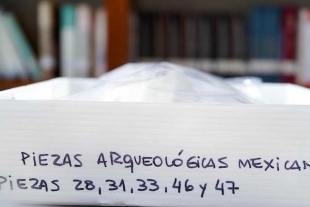 PIEZAS ARQUEOLÓGICAS MEXICAN
PIEZAS 28, 31, 33, 46 y 47